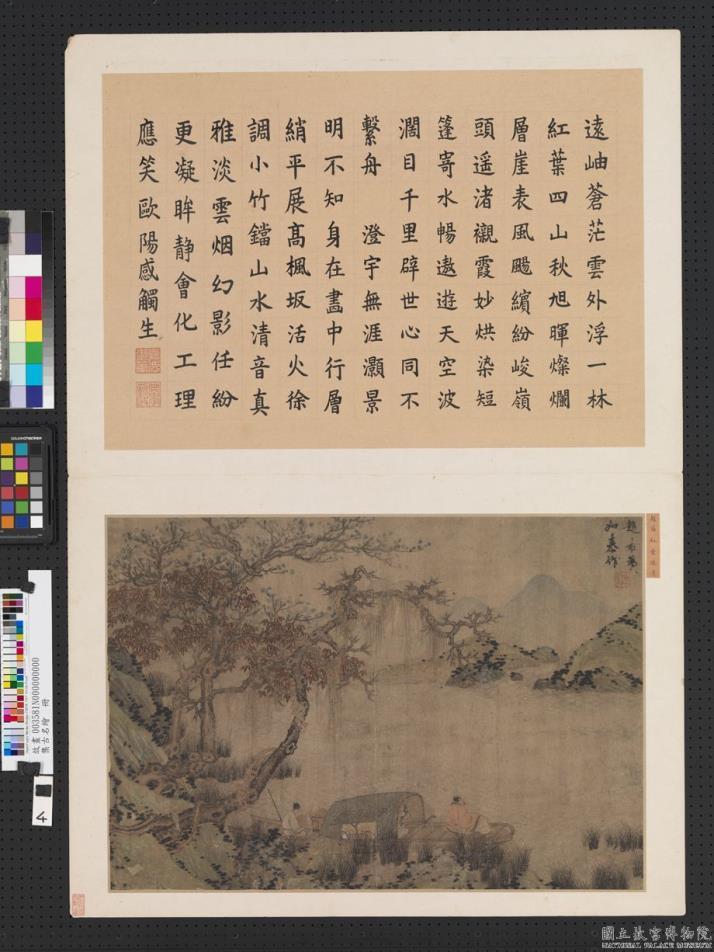 遠岫蒼茫雲外浮一林
紅葉四山秋旭暉燦爛
層崖表風颺繽紛峻嶺
頭遥渚襯霞妙烘染短
篷寄水暢遨遊天空波
濶目千里辟世心同不
繫舟 澄宇無涯灝景
明不知身在畫中行層
綃平展髙楓坂活火徐
調小竹鐺山水清音真
雅淡雲烟幻影任紛
更凝眸静會化工理
應笑歐陽感觸生
趙
如春作
故畫003581N000000000
集古名繪 冊
4
國立故宮博物院
NATIONAL PALACE MUSEUM